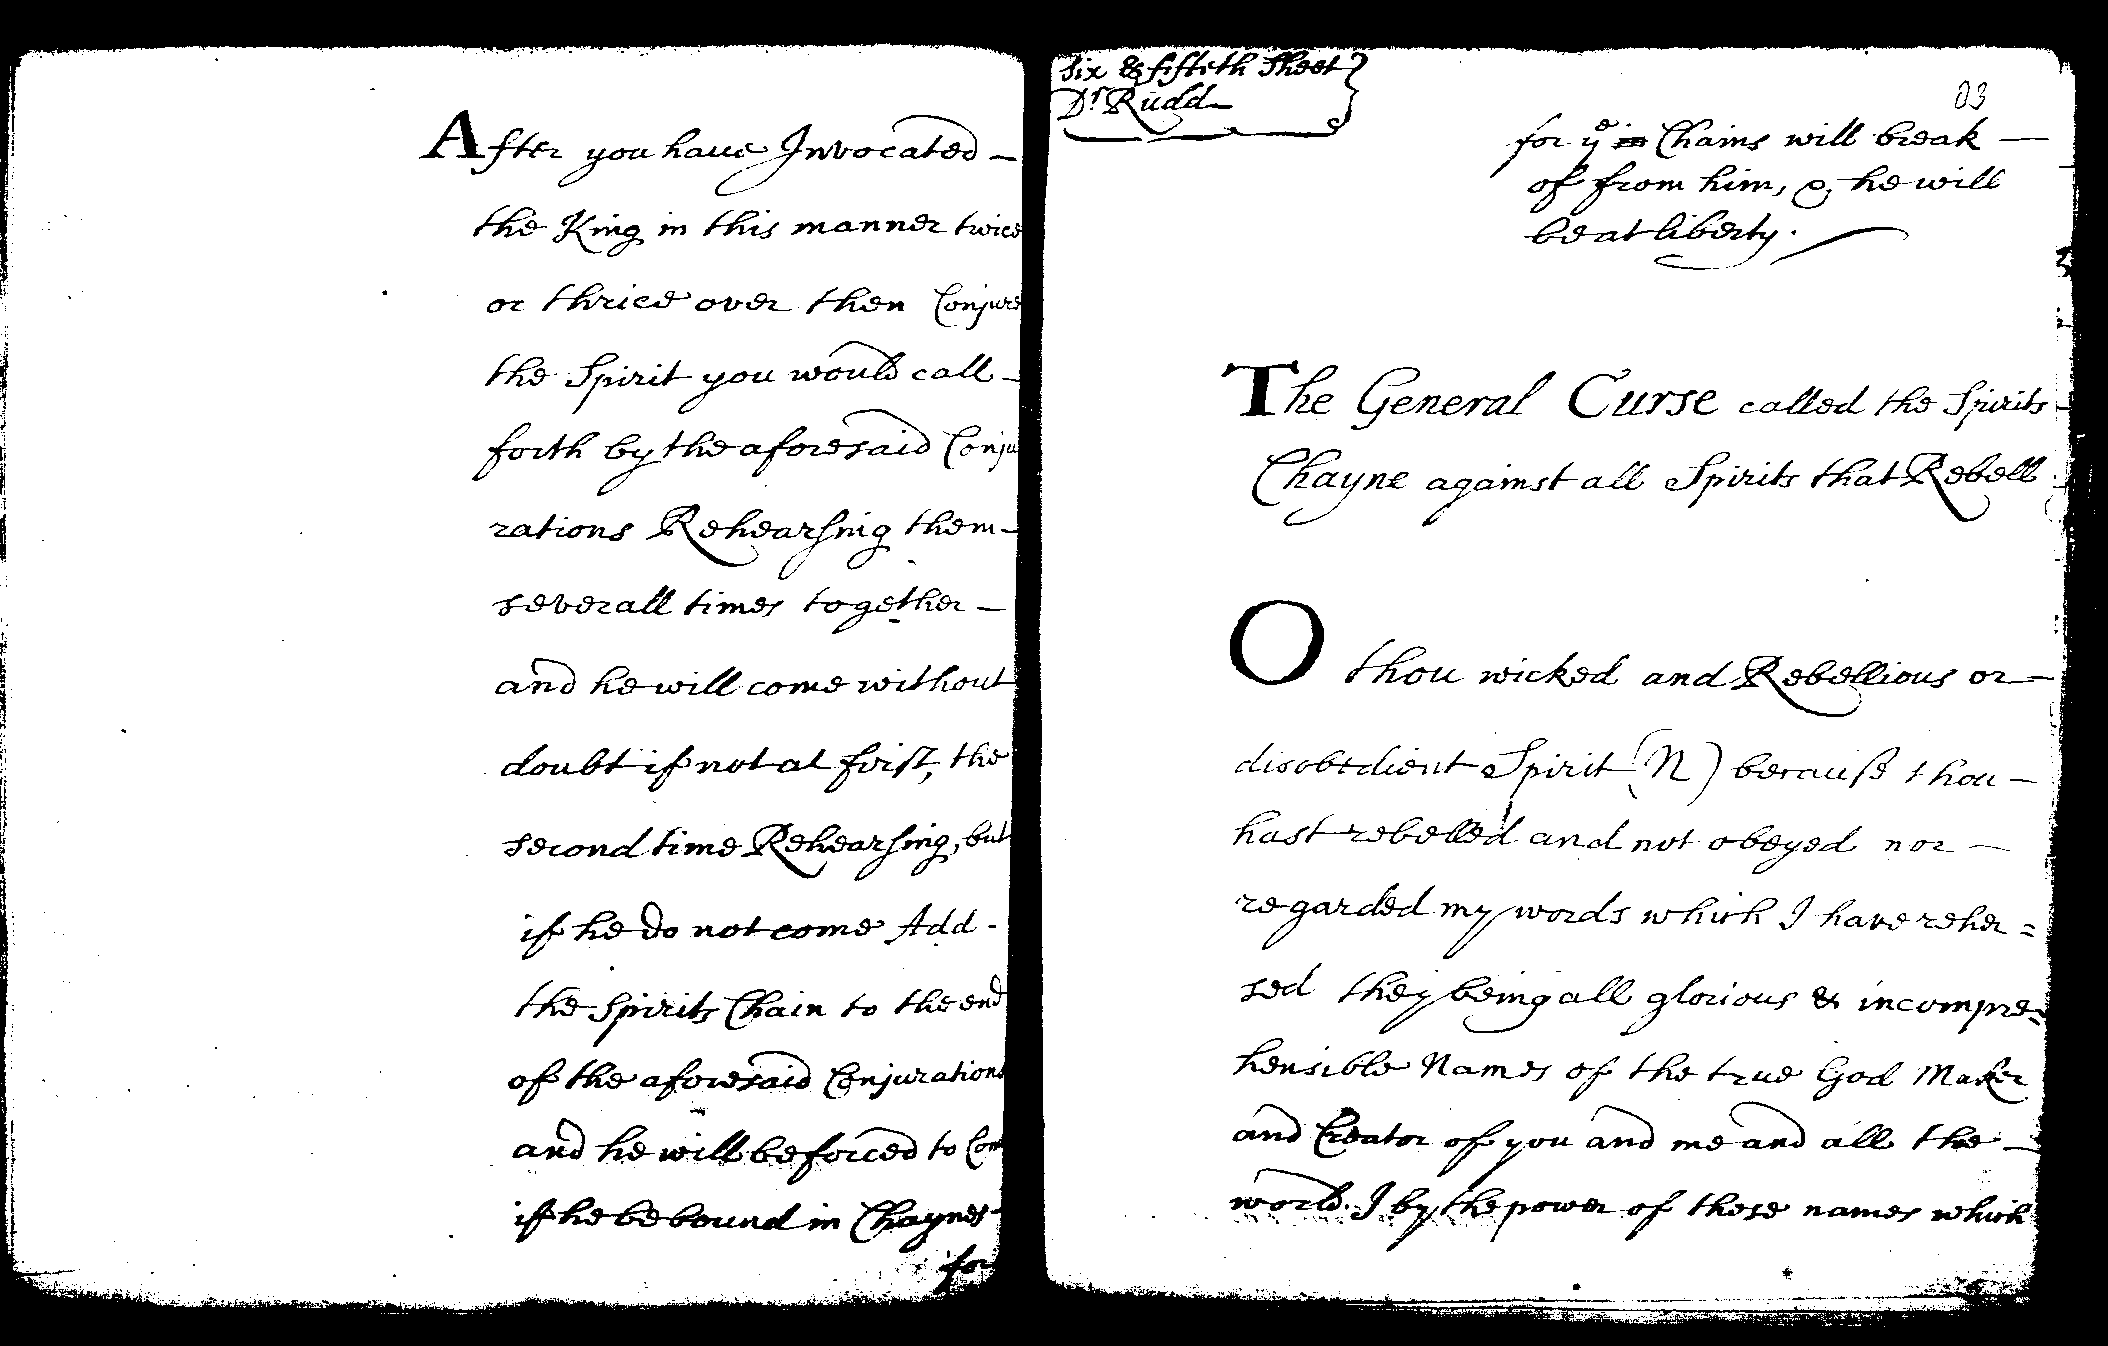 After you haue Invocated –
the King in this manner twice
or thrice over then Conjure
the Spirit you would call –
forth by the aforesaid Conju
rations Rehearsing them –
severall times together –
and he will come without
doubt if not at first, the
second time Rehearsing, but
if he do not come Add -
the Spirits Chain to the end
of the aforesaid Conjurations
and he will be forced to Com
if he be bound in Chaynes
for
six & fifteth Sheet
Dr Rudd
83
for ye Chains will break —
of from him, & he will
be at liberty.
The General Curse called the Spirits
Chayne against all Spirits that Rebell
O thou wicked and Rebellious or —
disobedient Spirit (N) because thou –
hast rebelled and not obeyed nor —
regarded my words which I have reher =
sed they being all glorious & incompre=
hensible Names of the true God Maker
and Creator of you and me and all the —
world. I by the power of these names which